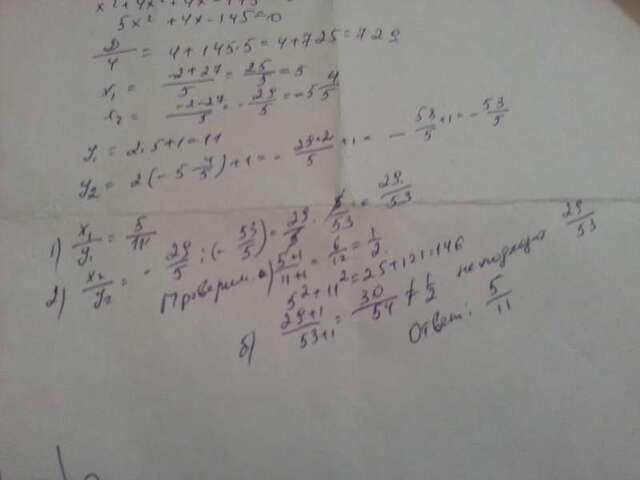 x² + 4x² + 4x - 145
5x² + 4x - 145 = 0
D/4 = 4 + 145·5 = 4 + 725 = 729
x₁ = (-2+27)/5 = 25/5 = 5
x₂ = (-2-27)/5 = -29/5 = -5 4/5
y₁ = 2·5+1 = 11
y₂ = 2(-5 4/5)+1 = -29·2/5 +1 = -53/5 +1 = -53/5
1) x₁/y₁ = 5/11
2) x₂/y₂ = -29/5 : (-53/5) = 29/5 · 5/53 = 29/53
Проверим а) (5+1)/(11+1) = 6/12 = 1/2
5² + 11² = 25 + 121 = 146
б) (29+1)/(53+1) = 30/54 ≠ 1/2 не подходит 29/53
Ответ: 5/11